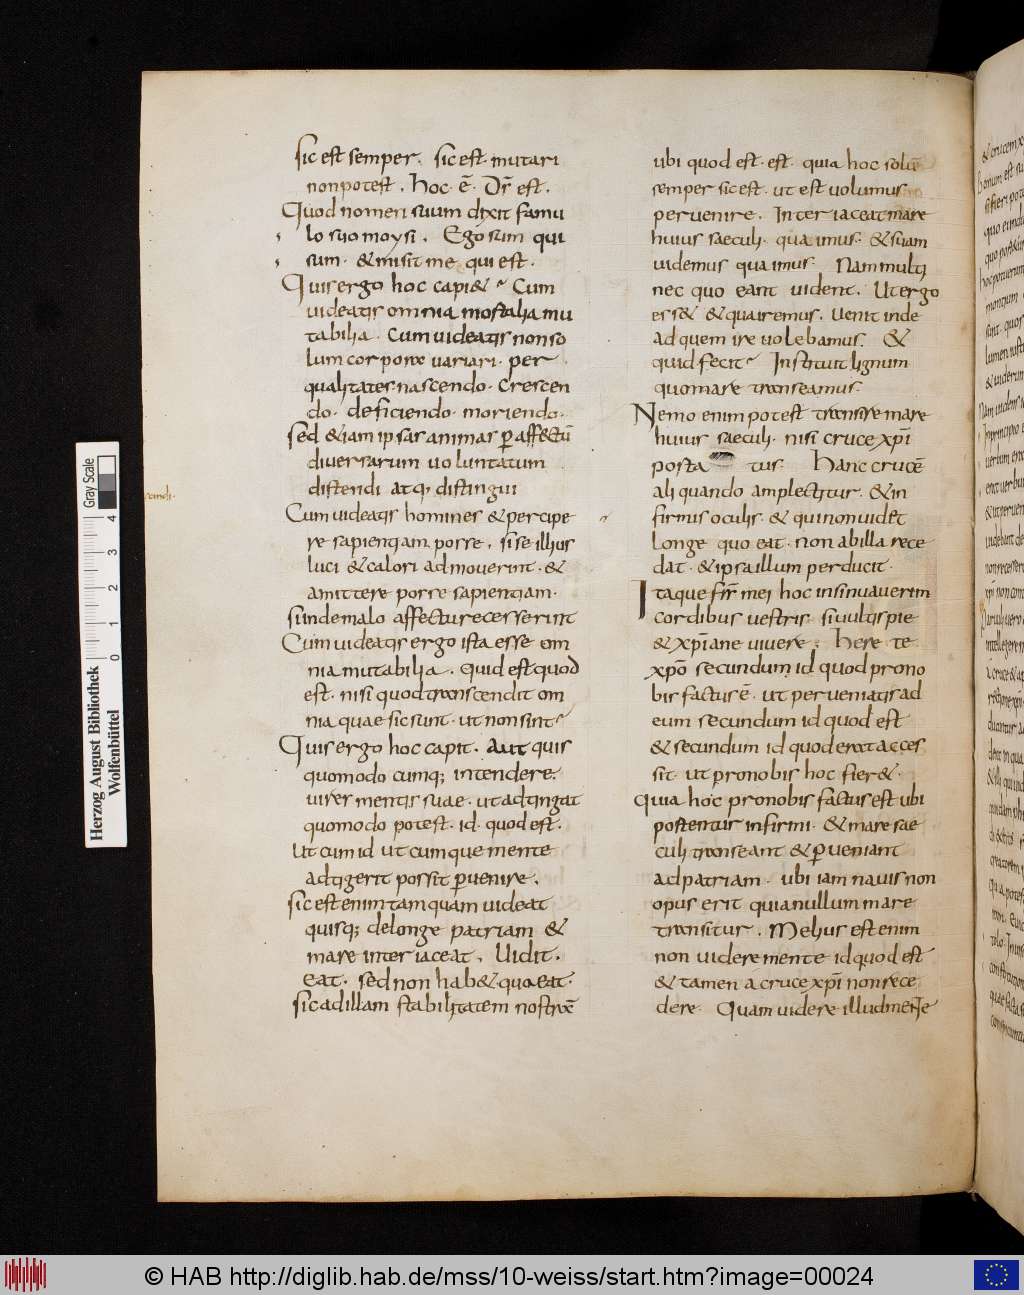 sic est semper. sic est mutari
non potest. hoc · ē · Dr̄ est.
Quod nomen suum dixit famu
lo suo moysi. Ego sum qui
sum · & misit me qui est.
Quis ergo hoc capi&? Cum
uideatis omnia mortalia mu
tabilia. Cum uideatis non so
lum corpora uariari. per
qualitates nascendo. Crescen
do. deficiendo. moriendo.
sed &iam ipsas animas p affectū
diuersarum uoluntatum
distendi atq; distingui
Cum uideatis homines & percipe
re sapientiam posse. si se illius
luci & calori admouerint · &
amittere posse sapientiam.
si inde malo affectu recesserint
Cum uideatis ergo ista esse om
nia mutabilia. Quid est quod
est. nisi quod transcendit om
nia quae sic sunt. ut non sint?
Quis ergo hoc capit. Aut quis
quomodo cumq; intenderet
uires mentis suae. ut adtingat
quomodo potest. id quod est.
Ut cum id utcumque mente
adtigerit possit puenire.
sic est enim tamquam uideat
quisq; de longe patriam &
mare interiaceat. Uidit.
eat. sed non hab& qua eat.
sic ad illam stabilitatem nostrā
ubi quod est · est. quia hoc solū
semper sic est. ut est uolumus
peruenire. Interiaceat mare
huius saeculi. qua imus. &si iam
uidemus qua imus. Nam multi
nec quo eant uident. Ut ergo
ess& & qua iremus. uenit inde
ad quem ire uolebamus. &
quid fecit? Instituit lignum
quo mare transeamus.
Nemo enim potest transire mare
huius saeculi. nisi cruce xp̄i
porta tus. Hanc crucē
aliquando amplectitur. & in
firmis oculis. & qui non uidet
longe quo eat. non ab illa rece
dat. & ipsa illum perducit.
Itaque fr̄r mei hoc insinuauerim
cordibus uestris. si uultis pie
& xp̄iane uiuere. herete
xp̄o secundum id quod pro no
bis factus ē. ut perueniatis ad
eum secundum id quod est
& secundum id quod erat acces
sit. ut pro nobis hoc fier&.
Quia hoc pro nobis factus est ubi
portentur infirmi. & mare sae
culi transeant & pueniant
ad patriam. ubi iam nauis non
opus erit quia nullum mare
transitur. Melius est enim
non uidere mente id quod est
& tamen a cruce xp̄i non rece
dere. Quam uidere illud mente
Herzog August Bibliothek
Wolfenbüttel
Gray Scale
0 1 2 3 4
© HAB http://diglib.hab.de/mss/10-weiss/start.htm?image=00024